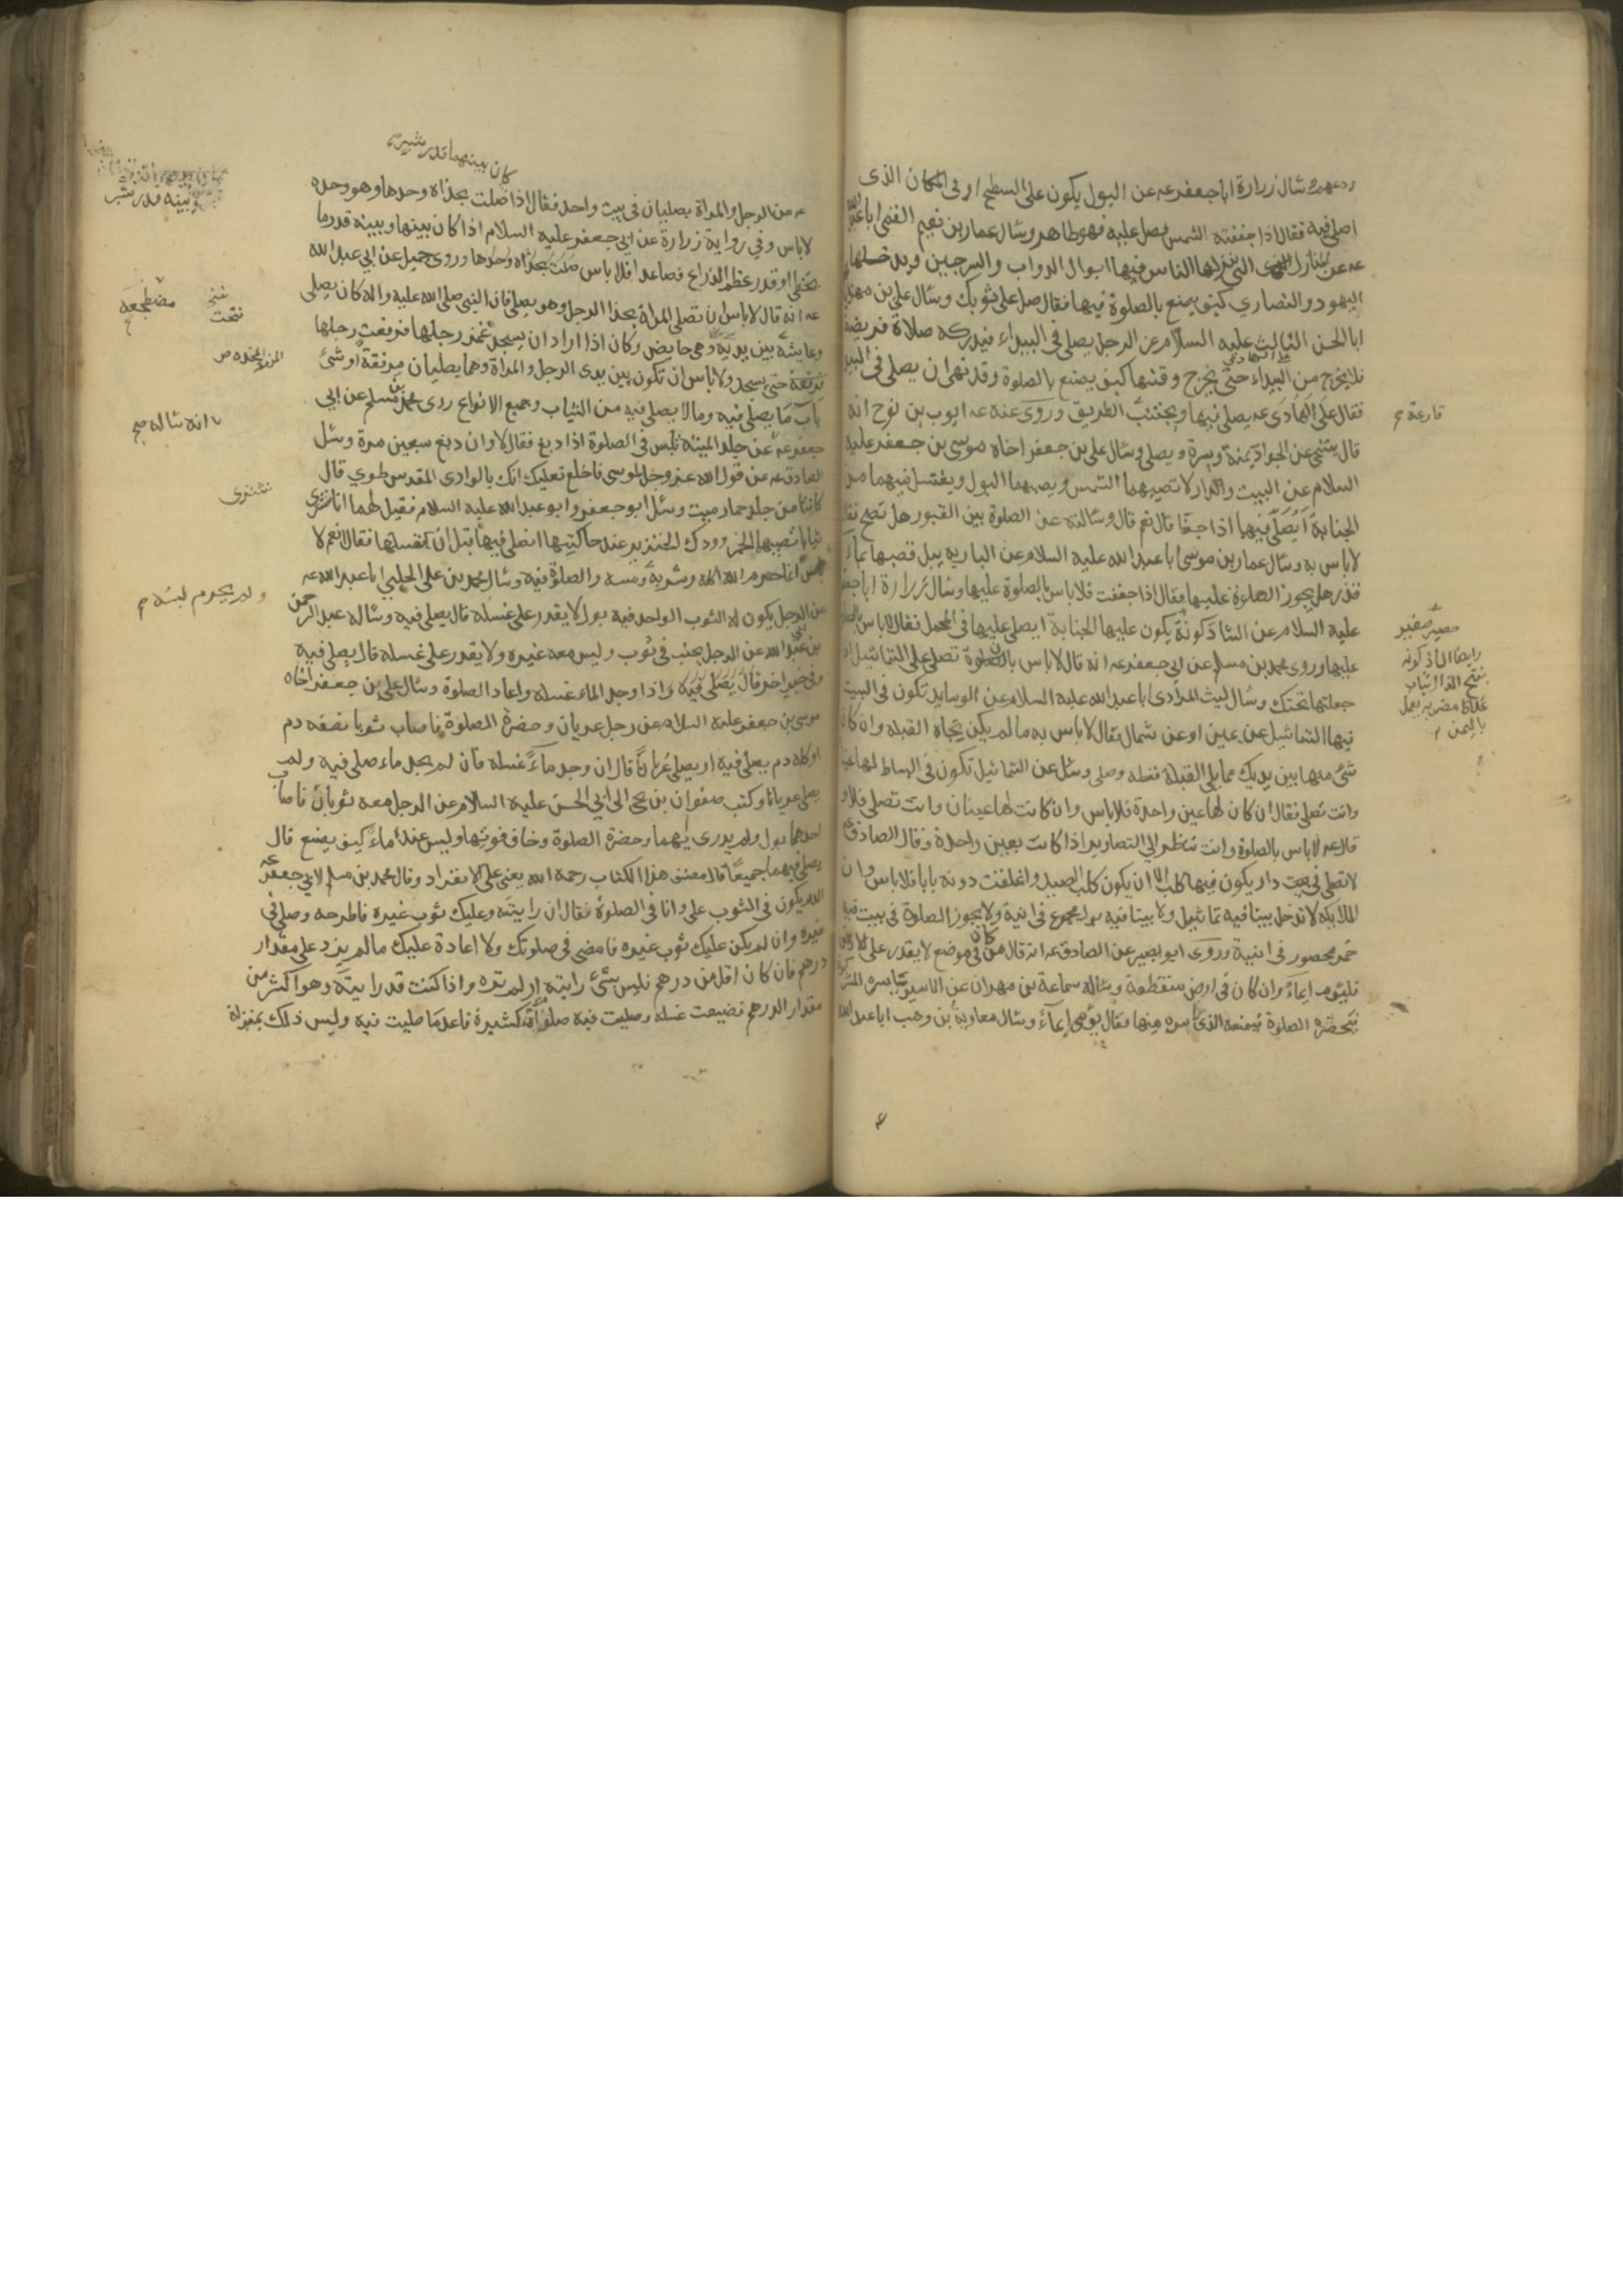 وسأل زرارة ابا جعفر عه عن البول يكون على السطح او في المكان الذى
اصلى فيه فقال اذا جففته الشمس فصل عليه فهو طاهر وسال عمار بن نعيم القمى ابا عبد الله
عه عن المنازل التى ينزلها الناس فيها ابوال الدواب والسرجين ويدخلها
اليهود والنصارى كيف يصنع بالصلوة فيها فقال صل على ثوبك وسال على بن مهزيار
ابا الحسن الثالث عليه السلام عن الرجل يصلى في البيداء فيدركه صلاة فريضة
فلا يخرج من البيداء حتى يخرج وقتها كيف يصنع بالصلوة وقد نهى ان يصلى فى البيداء
فقال على الهادى عه يصلى فيها ويجتنب الطريق وروى عنه عه ايوب بن نوح انه
قال يتنحى عن الجواد يمنة ويسرة ويصلى وسال على بن جعفر اخاه موسى بن جعفر عليه
السلام عن البيت والدار لا تصيبهما الشمس ويصيبهما البول ويغتسل فيهما من
الجنابة ايصلى فيهما اذا جفا قال نعم قال وسالته عن الصلوة بين القبور هل تصح فقال
لا باس به وسال عمار بن موسى ابا عبد الله عليه السلام عن البارية يبل قصبها بماء
قذر هل يجوز الصلوة عليها فقال اذا جففت فلا باس بالصلوة عليها وسال زرارة ابا جعفر
عليه السلام عن الشاذكونة يكون عليها الجنابة ايصلى عليها فى المحمل فقال لا باس بالصلوة
عليها وروى محمد بن مسلم عن ابى جعفر عه انه قال لا باس بان تصلى على التماثيل اذا
جعلتها تحتك وسال ليث المرادى ابا عبد الله عليه السلام عن الوسايد تكون فى البيت
فيها التماثيل عن يمين او عن شمال فقال لا باس به ما لم يكن تجاه القبلة وان كان
شئ منها بين يديك مما يلى القبلة فغطه وصلى وسئل عن التماثيل تكون فى البساط لها عينان
وانت تصلى فقال ان كان لها عين واحدة فلا باس وان كانت لها عينان وانت تصلى فلا و
قال عه لا باس بالصلوة وانت تنظر الى التصاوير اذا كانت بعين واحدة وقال الصادق عه
لا تصلى فى بيت دار يكون فيها كلب الا ان يكون كلب الصيد واغلقت دونه بابا فلا باس وان
الملايكة لا تدخل بيتا فيه تماثيل ولا بيتا فيه بول مجموع فى انية ولا يجوز الصلوة فى بيت فيه
خمر محصور فى انية وروى ابو بصير عن الصادق عه انه قال من كان فى موضع لا يقدر على الارض
فليؤم ايماء وان كان فى ارض منقطعة وساله سماعة بن مهران عن الاسير ياسره المشركون
فتحضره الصلوة فيمنعه الذى اسره منها فقال يؤمى ايماء وسال معاوية بن وهب ابا عبد الله
قارعة
حصير صغير
بفتح الذال ثياب
غلاظ مضربه يعمل
باليمن
كان بينهما قدر شبر
عه عن الرجل والمراة يصليان فى بيت واحد فقال اذا صلت بحذاه وحدها وهو وحده
لا باس وفي رواية زرارة عن ابى جعفر عليه السلام اذا كان بينها وبينه قدر ما
يتخطى او قدر عظم الذراع فصاعدا فلا باس صلت بحذاه وحدها وروى جميل عن ابى عبد الله
عه انه قال لا باس ان تصلى المراة بحذا الرجل وهو يصلى فان النبى صلى الله عليه واله كان يصلى
وعايشة بين يديه وهى حايض وكان اذا اراد ان يسجد غمز رجليها فرفعت رجليها
حتى يسجد ولا باس ان تكون بين يدى الرجل والمراة وهما يصليان مرفقة او شئ
باب ما يصلى فيه وما لا يصلى فيه من الثياب وجميع الانواع روى محمد بن مسلم عن ابى
جعفر عه عن جلد الميتة تلبس فى الصلوة اذا دبغ فقال لا وان دبغ سبعين مرة وسئل
الصادق عه عن قول الله عز وجل لموسى فاخلع نعليك انك بالوادى المقدس طوى قال
كانتا من جلد حمار ميت وسئل ابو جعفر وابو عبد الله عليه السلام فقيل لهما انا نشترى
ثيابا تصيبها الخمر وودك الخنزير عند حاكتها انصلى فيها قبل ان نغسلها فقالا نعم لا
باس انما حرم الله اكله وشربه ومسه والصلوة فيه وسال محمد بن على الحلبى ابا عبد الله عه
عن الرجل يكون له الثوب الواحد فيه بول لا يقدر على غسله قال يصلى فيه وساله عبد الرحمن
بن ابى عبد الله عن الرجل يجنب فى ثوب وليس معه غيره ولا يقدر على غسله قال يصلى فيه
وفى خبر اخر قال يصلى فيه واذا وجد الماء غسله واعاد الصلوة وسال على بن جعفر اخاه
موسى بن جعفر عليه السلام عن رجل عريان وحضرة الصلوة فاصاب ثوبا نصفه دم
او كله دم يصلى فيه او يصلى عريانا قال ان وجد ماء غسله فان لم يجد ماء صلى فيه ولم
يصلى عريانا وكتب صفوان بن يحيى الى ابى الحسن عليه السلام عن الرجل معه ثوبان فاصاب
احدهما بول ولم يدرى ايهما وحضرة الصلوة وخاف فوتها وليس عنده ماء كيف يصنع قال
يصلى فيهما جميعا قال مصنف هذا الكتاب رحمه الله يعنى على الانفراد وقال محمد بن مسلم لابى جعفر عه
الدم يكون فى الثوب على وانا فى الصلوة فقال ان رايته وعليك ثوب غيره فاطرحه وصلى فى
غيره وان لم يكن عليك ثوب غيره فامضى فى صلوتك ولا اعادة عليك ما لم يزد على مقدار
درهم فان كان اقل من درهم فليس بشئ رايته او لم تره واذا كنت قد رايته وهو اكثر من
مقدار الدرهم فضيعت غسله وصليت فيه صلوة كثيرة فاعد ما صليت فيه وليس ذلك بمنزلة
وبينه قدر شبر
مضطجعة
فتحت
انه ساله صح
نشترى
ولم يحرم لبسه